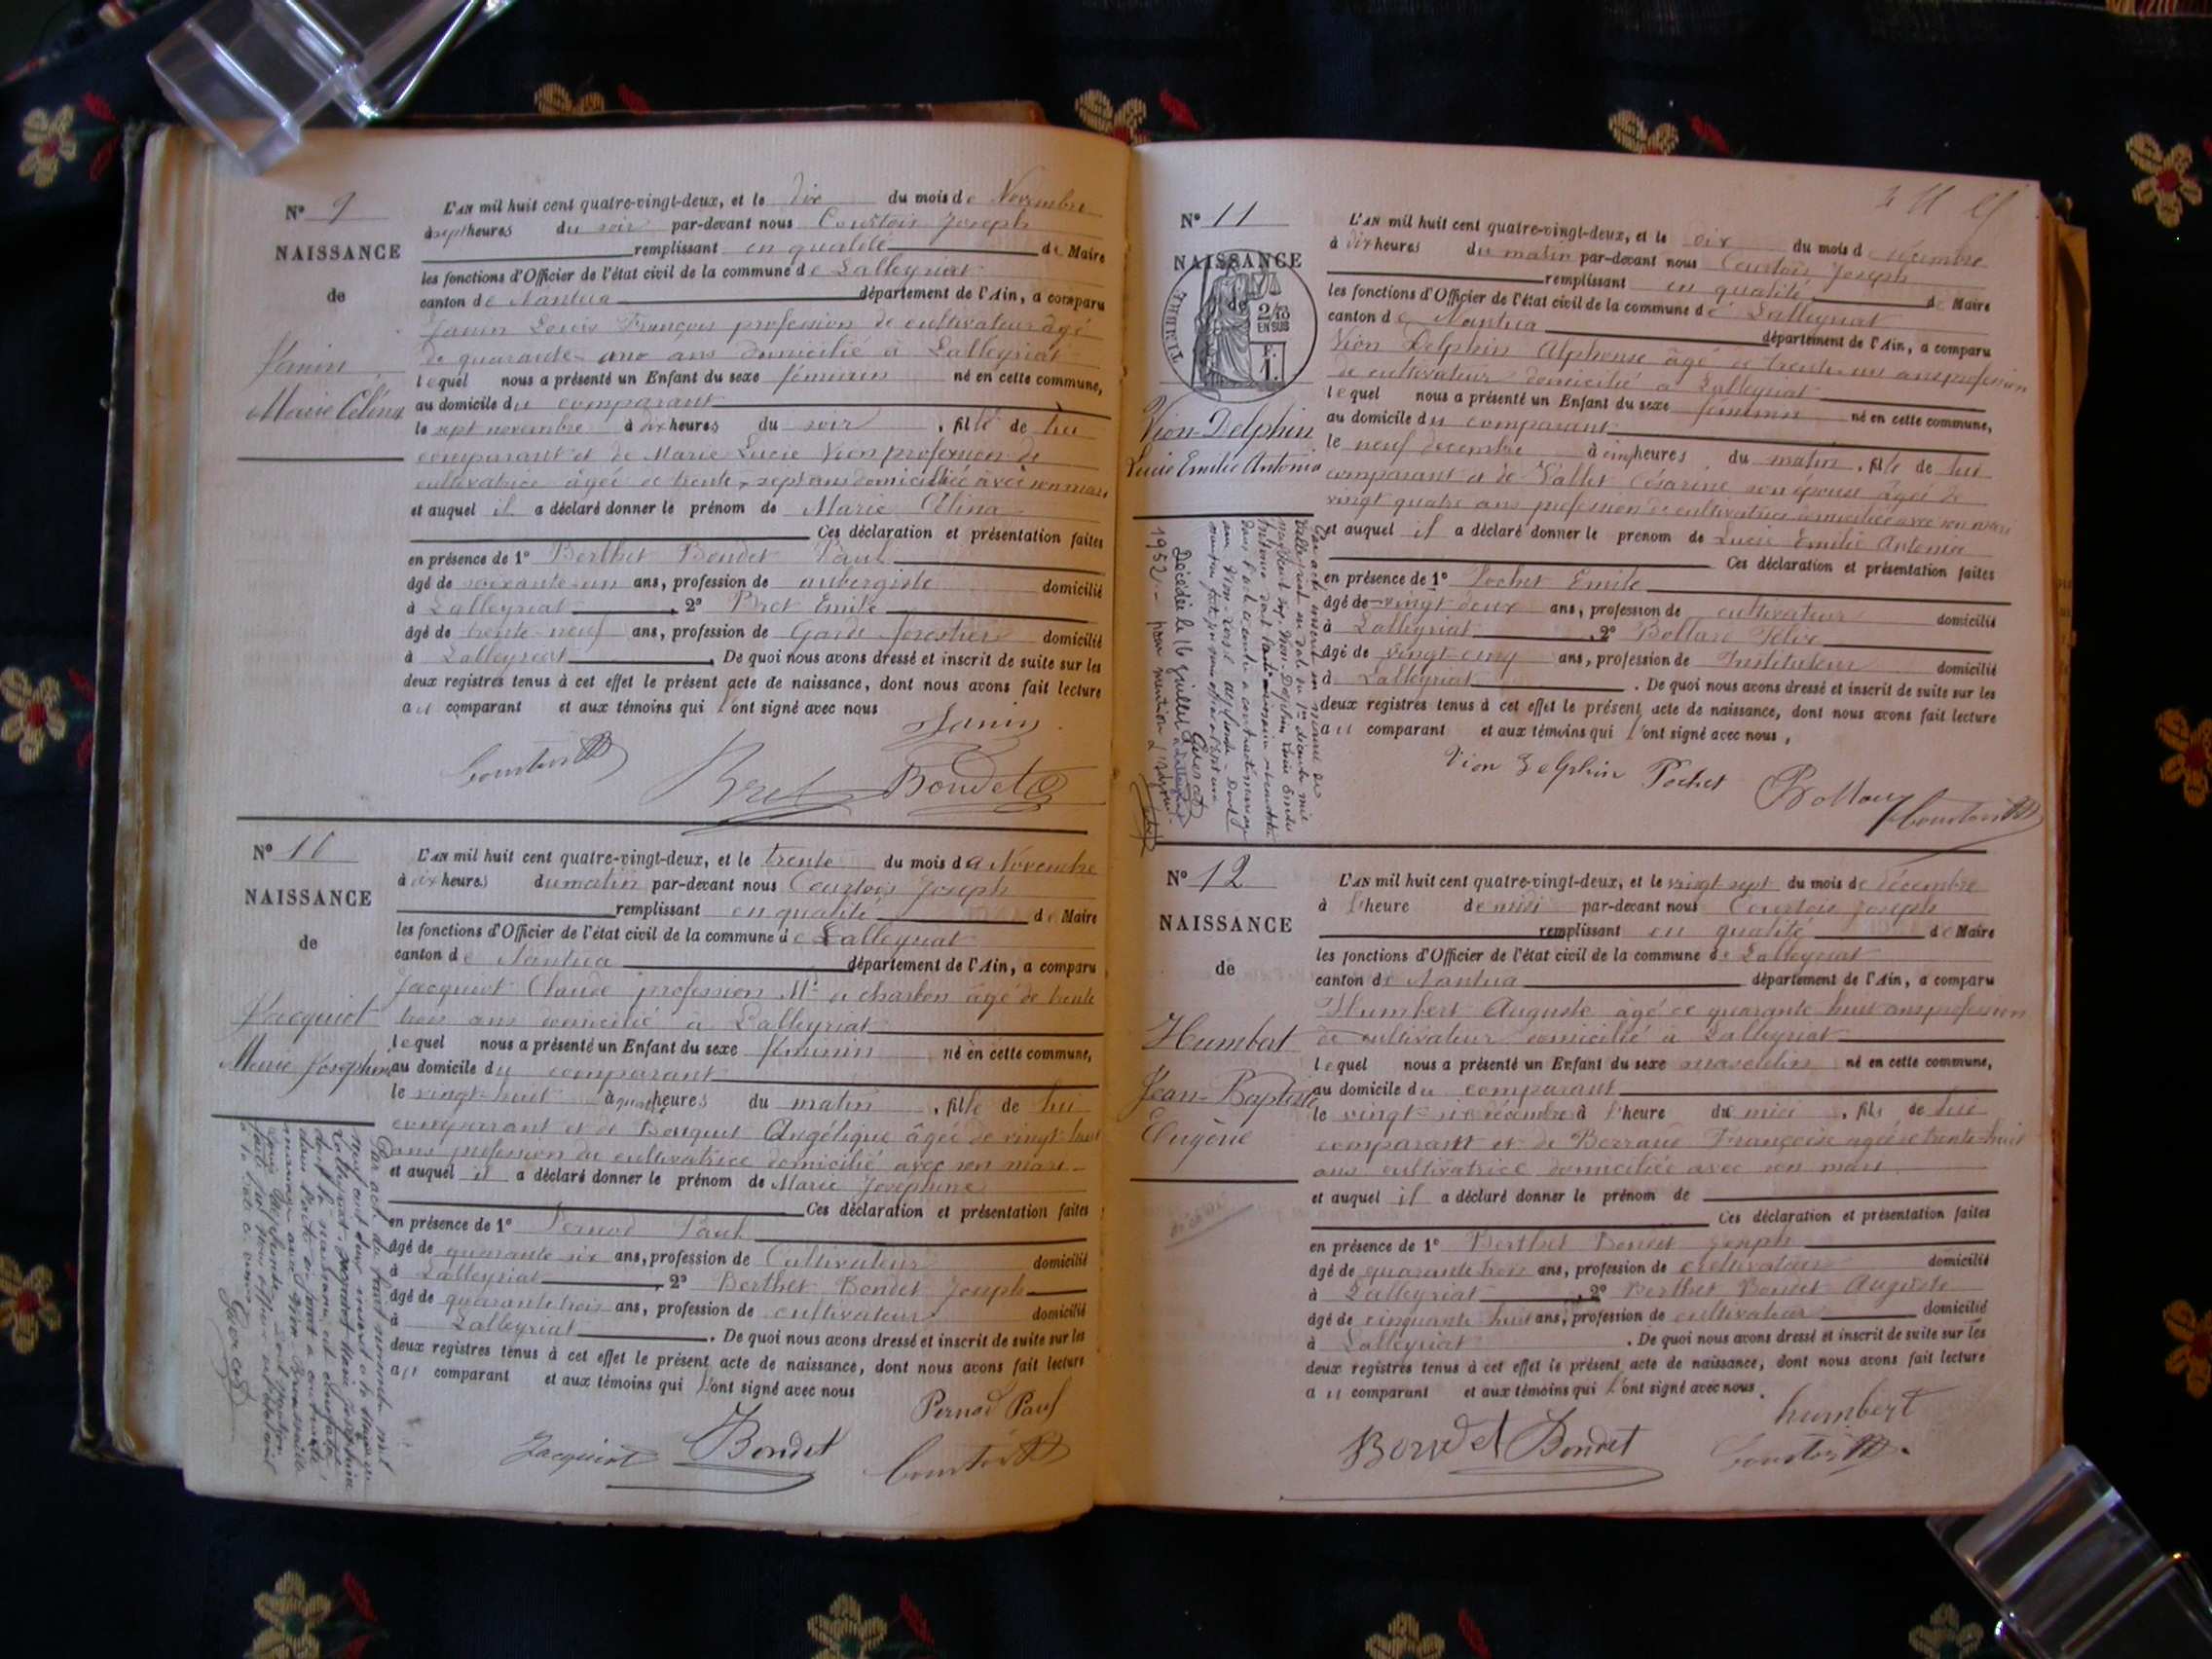 N° 9
NAISSANCE
de
Janin
Marie Célina
L'AN mil huit cent quatre-vingt-deux, et le dix du mois de Novembre
à sept heures du soir par-devant nous Courtois Joseph
remplissant en qualité de Maire
les fonctions d'Officier de l'état civil de la commune de Lalleyriat
canton de Nantua département de l'Ain, a comparu
Janin Louis François profession de cultivateur âgé
de quarante-une ans domicilié à Lalleyriat
lequel nous a présenté un Enfant du sexe féminin né en cette commune,
au domicile du comparant
le sept novembre à dix heures du soir, fille de lui
comparant et de Marie Lucie Vion profession de
cultivatrice âgée de trente-sept ans domiciliée avec son mari
et auquel il a déclaré donner le prénom de Marie Célina
Ces déclaration et présentation faites
en présence de 1° Berthet Bondet Paul
âgé de soixante-un ans, profession de aubergiste domicilié
à Lalleyriat, 2° Bret Emile
âgé de trente-neuf ans, profession de Garde forestier domicilié
à Lalleyriat. De quoi nous avons dressé et inscrit de suite sur les
deux registres tenus à cet effet le présent acte de naissance, dont nous avons fait lecture
au comparant et aux témoins qui l'ont signé avec nous
Janin
Courtois Bret Bondet
N° 10
NAISSANCE
de
Jacquiot
Marie Joséphine
L'AN mil huit cent quatre-vingt-deux, et le trente du mois de Novembre
à dix heures du matin par-devant nous Courtois Joseph
remplissant en qualité de Maire
les fonctions d'Officier de l'état civil de la commune de Lalleyriat
canton de Nantua département de l'Ain, a comparu
Jacquiot Claude profession Md de charbon âgé de trente
trois ans domicilié à Lalleyriat
lequel nous a présenté un Enfant du sexe féminin né en cette commune,
au domicile du comparant
le vingt-huit à quatre heures du matin, fille de lui
comparant et de Bouquet Angélique âgée de vingt-huit
ans profession de cultivatrice domicilié avec son mari
et auquel il a déclaré donner le prénom de Marie Joséphine
Ces déclaration et présentation faites
en présence de 1° Pernod Paul
âgé de quarante six ans, profession de Cultivateur domicilié
à Lalleyriat, 2° Berthet Bondet Joseph
âgé de quarante trois ans, profession de cultivateur domicilié
à Lalleyriat. De quoi nous avons dressé et inscrit de suite sur les
deux registres tenus à cet effet le présent acte de naissance, dont nous avons fait lecture
au comparant et aux témoins qui l'ont signé avec nous
Pernod Paul
Jacquiot Bondet Courtois
N° 11
NAISSANCE
de
2/10
EN SUS
F.
1.
Vion-Delphin
Lucie Emilie Antonia
Décédée le 16 juillet
1952
L'AN mil huit cent quatre-vingt-deux, et le dix du mois de décembre
à dix heures du matin par-devant nous Courtois Joseph
remplissant en qualité de Maire
les fonctions d'Officier de l'état civil de la commune de Lalleyriat
canton de Nantua département de l'Ain, a comparu
Vion Delphin Alphonse âgé de trente un ans profession
de cultivateur domicilié à Lalleyriat
lequel nous a présenté un Enfant du sexe féminin né en cette commune,
au domicile du comparant
le neuf décembre à cinq heures du matin, fille de lui
comparant et de Vallet Césarine son épouse âgée de
vingt quatre ans profession de cultivatrice domiciliée avec son mari
et auquel il a déclaré donner le prénom de Lucie Emilie Antonia
Ces déclaration et présentation faites
en présence de 1° Pochet Emile
âgé de vingt deux ans, profession de cultivateur domicilié
à Lalleyriat, 2° Felix
âgé de vingt-cinq ans, profession de Instituteur domicilié
à Lalleyriat. De quoi nous avons dressé et inscrit de suite sur les
deux registres tenus à cet effet le présent acte de naissance, dont nous avons fait lecture
au comparant et aux témoins qui l'ont signé avec nous,
Vion Delphin Pochet Courtois
N° 12
NAISSANCE
de
Humbert
Jean-Baptiste
Eugène
L'AN mil huit cent quatre-vingt-deux, et le vingt sept du mois de décembre
à l'heure de midi par-devant nous Courtois Joseph
remplissant en qualité de Maire
les fonctions d'Officier de l'état civil de la commune de Lalleyriat
canton de Nantua département de l'Ain, a comparu
Humbert Auguste âgé de quarante huit ans profession
de cultivateur domicilié à Lalleyriat
lequel nous a présenté un Enfant du sexe masculin né en cette commune,
au domicile du comparant
le vingt-six décembre à l'heure du midi, fils de lui
comparant et de Berraud Françoise agée de trente-huit
ans cultivatrice domiciliée avec son mari
et auquel il a déclaré donner le prénom de
Ces déclaration et présentation faites
en présence de 1° Berthet Bondet Joseph
âgé de quarante trois ans, profession de cultivateur domicilié
à Lalleyriat, 2° Berthet Bondet Auguste
âgé de cinquante huit ans, profession de cultivateur domicilié
à Lalleyriat. De quoi nous avons dressé et inscrit de suite sur les
deux registres tenus à cet effet le présent acte de naissance, dont nous avons fait lecture
au comparant et aux témoins qui l'ont signé avec nous.
humbert
Bondet Bondet Courtois